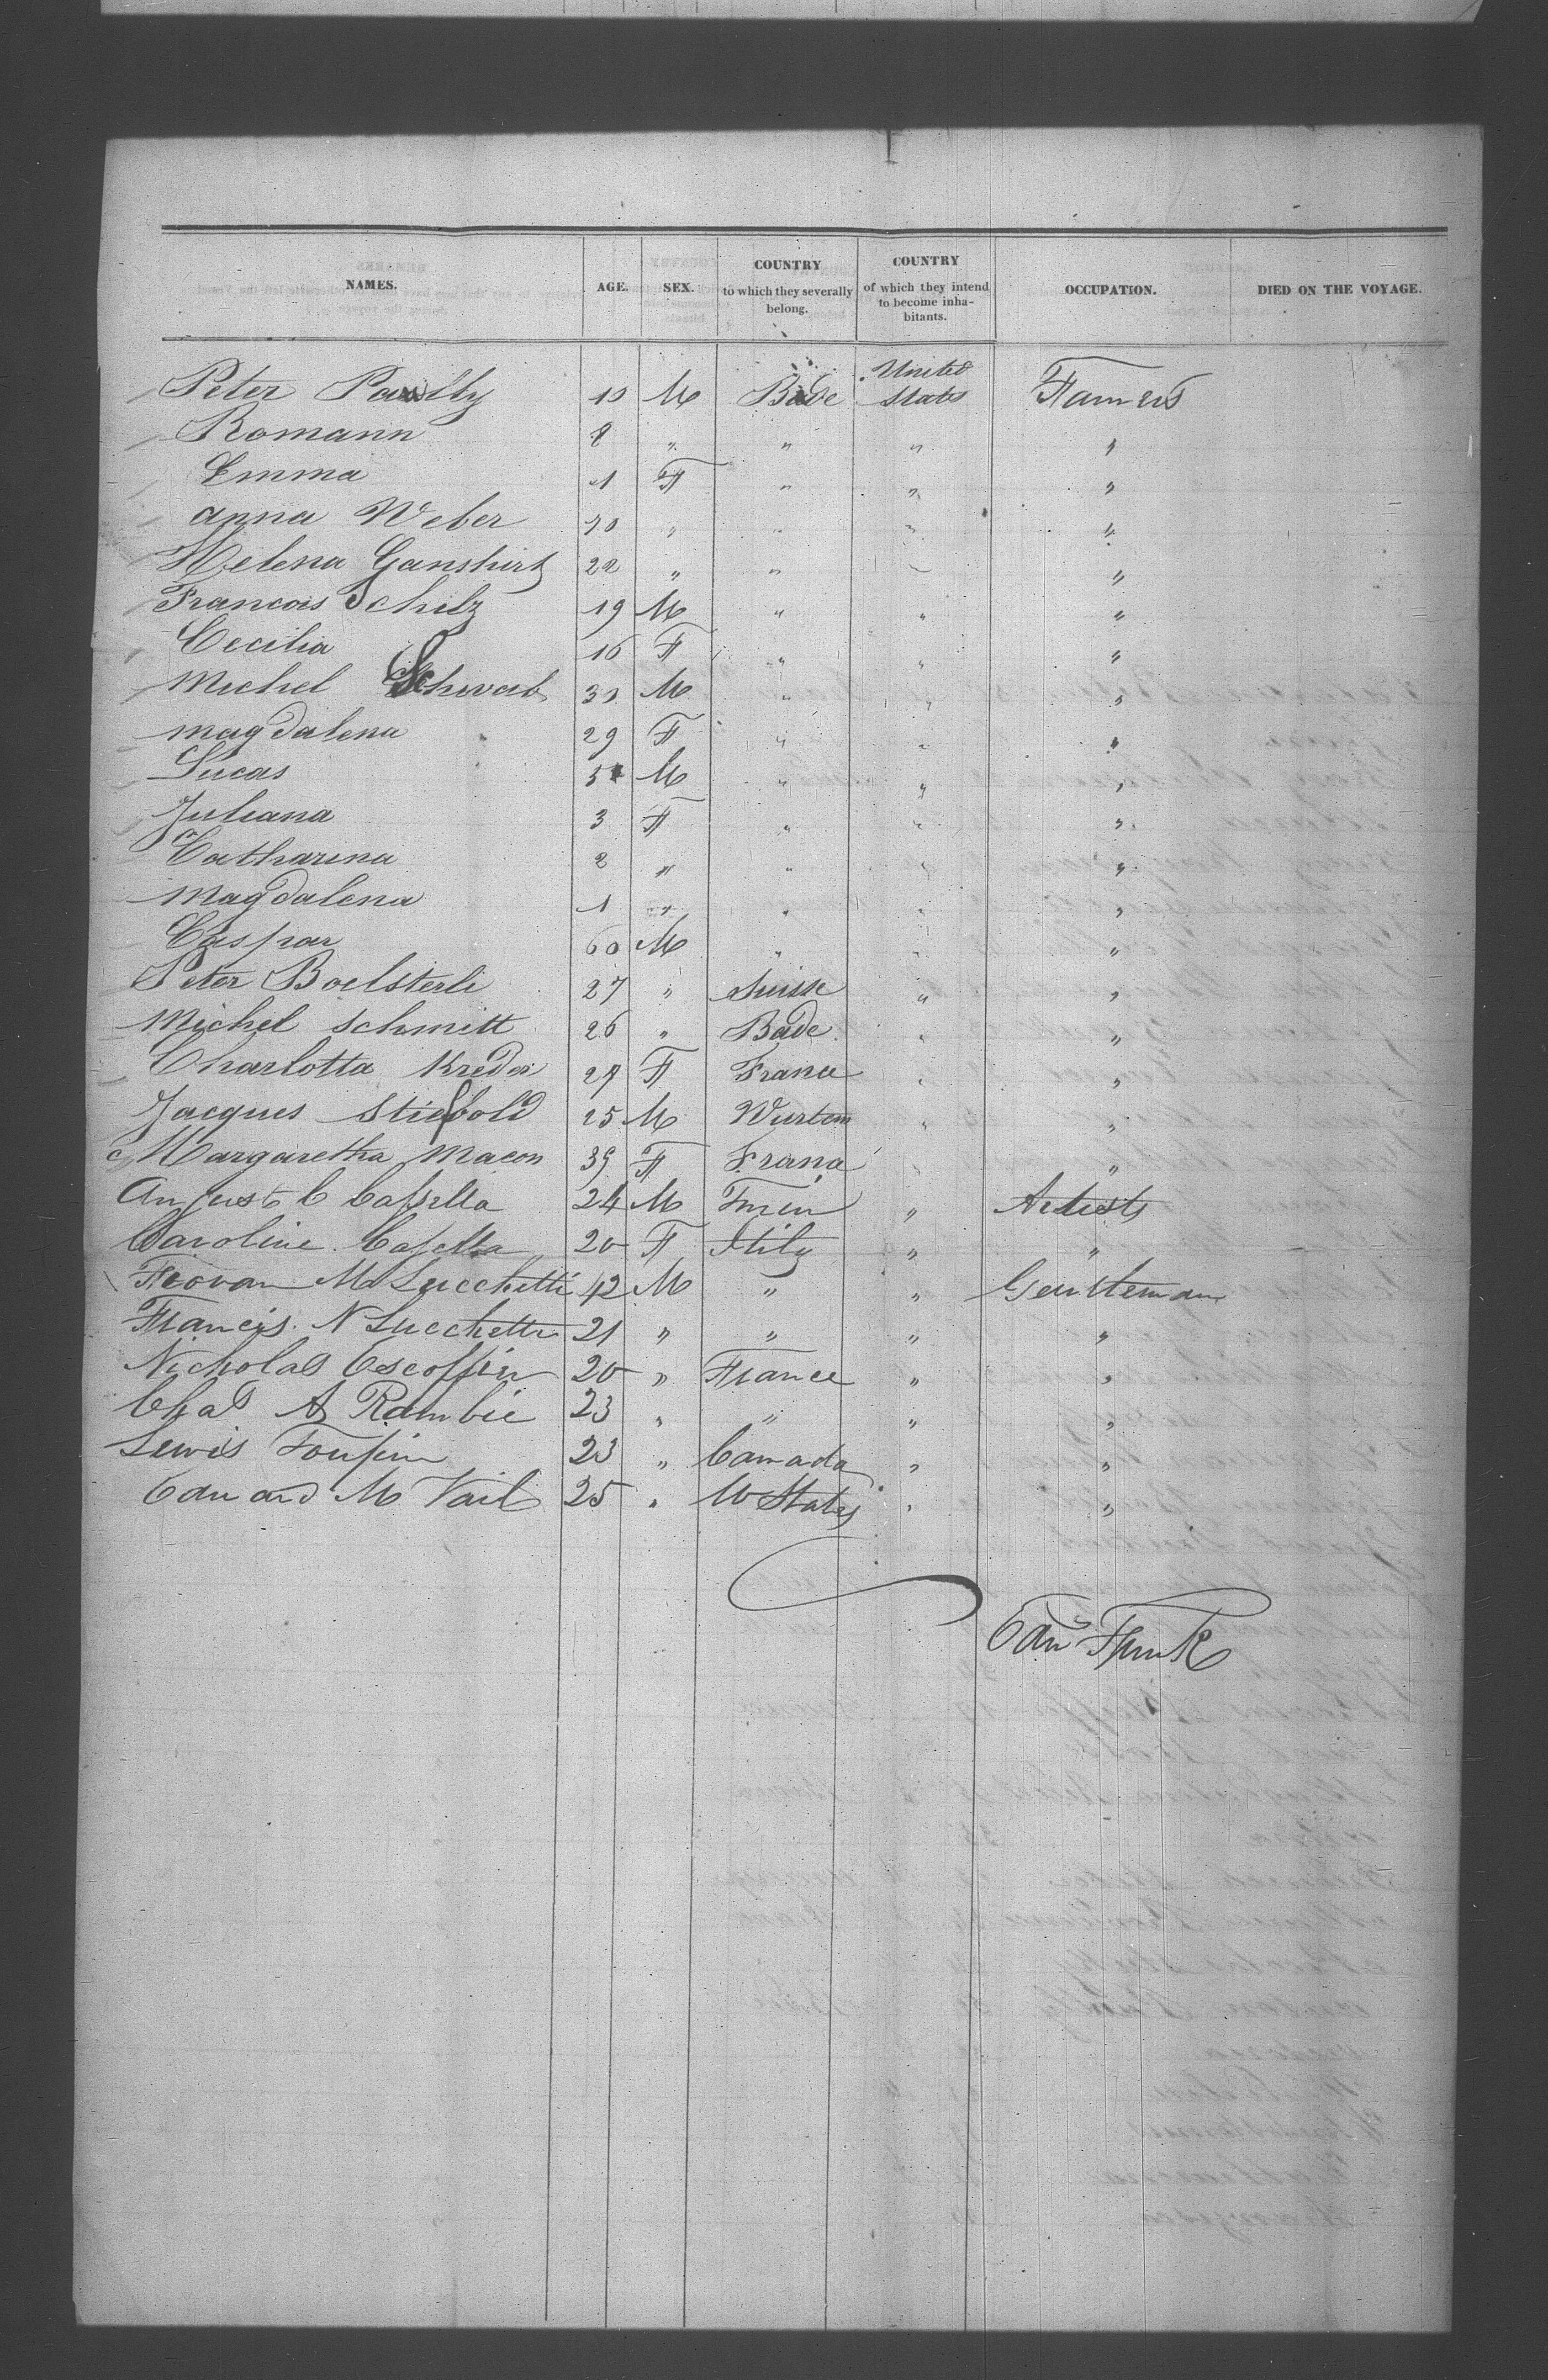 NAMES. AGE. SEX. COUNTRY to which they severally belong. COUNTRY of which they intend to become inhabitants. OCCUPATION. DIED ON THE VOYAGE.
Peter 10 M Bade United States Farmers
Romann 8 " " " "
Emma 1 F " " "
Anna Weber " " " "
Helena Ganshirt 22 " " " "
Francois Schilz 19 M " " "
Cecilia 16 F " " "
Michel Schwab 30 M " " "
Magdalena 29 F " " "
Lucas 5 M " " "
Juliana 3 F " " "
Catharina 2 " " " "
Magdalena 1 " " " "
Caspar 60 M " " "
Peter Boelsterli 27 " Suisse " "
Michel Schmitt 26 " Bade " "
Charlotta F France " "
Jacques Stiebold 25 M Wurtem " "
Margaretha Macon 39 F France " "
August C Cassella 24 M Turin " Artists
Caroline Casella 20 F Itily " "
M Lucchetti 42 M " " Gentleman
Francis N Lucchetti 21 " " " "
Nicholas Escoffier 20 " France " "
Chas A Rambie 23 " " " "
Lewis Toupin 23 " Canada " "
Edward M Vail 25 " U States " "
Edw Funk